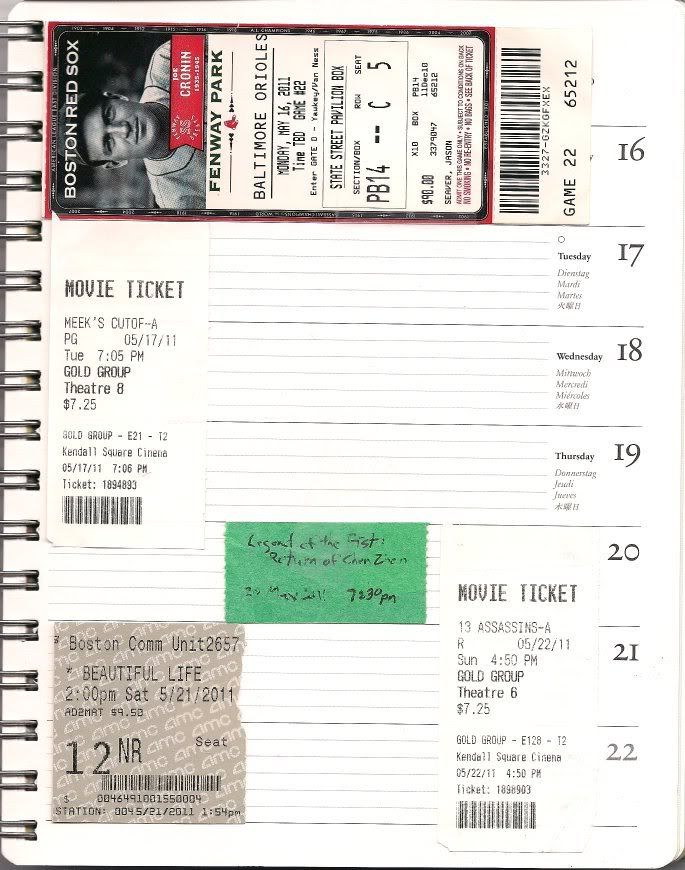 BOSTON RED SOX
JOE
CRONIN
1935-1945
FENWAY PARK
BALTIMORE ORIOLES
MONDAY, MAY 16, 2011
Time TBD GAME #22
Enter GATE D - Yawkey/Van Ness
STATE STREET PAVILION BOX
SECTION/BOX ROW SEAT
PB14 -- C 5
X10 BOX PB14
110ec10
3379047 65212
$90.00 SEAVER, JASON
ADMIT ONE THIS GAME ONLY • SUBJECT TO CONDITIONS ON BACK
NO SMOKING • NO RE-ENTRY • NO BAGS • SEE BACK OF TICKET
3327-GZKGFXEX
GAME 22 65212
16
Tuesday 17
Dienstag
Mardi
Martes
火曜日
Wednesday 18
Mittwoch
Mercredi
Miércoles
水曜日
Thursday 19
Donnerstag
Jeudi
Jueves
20
21
22
MOVIE TICKET
MEEK'S CUTOF-A
PG 05/17/11
Tue 7:05 PM
GOLD GROUP
Theatre 8
$7.25
GOLD GROUP - E21 - T2
Kendall Square Cinema
05/17/11 7:06 PM
Ticket: 1894893
Legend of the Fist:
Return of Chen Zhen
20 May 2011 7:30pm
Boston Comm Unit2657
* BEAUTIFUL LIFE
2:00pm Sat 5/21/2011
AD2MAT $9.50
12 NR Seat
$ 0046491001550004
STATION: 0045/21/2011 1:54pm
MOVIE TICKET
13 ASSASSINS-A
R 05/22/11
Sun 4:50 PM
GOLD GROUP
Theatre 6
$7.25
GOLD GROUP - E128 - T2
Kendall Square Cinema
05/22/11 4:50 PM
Ticket: 1898903